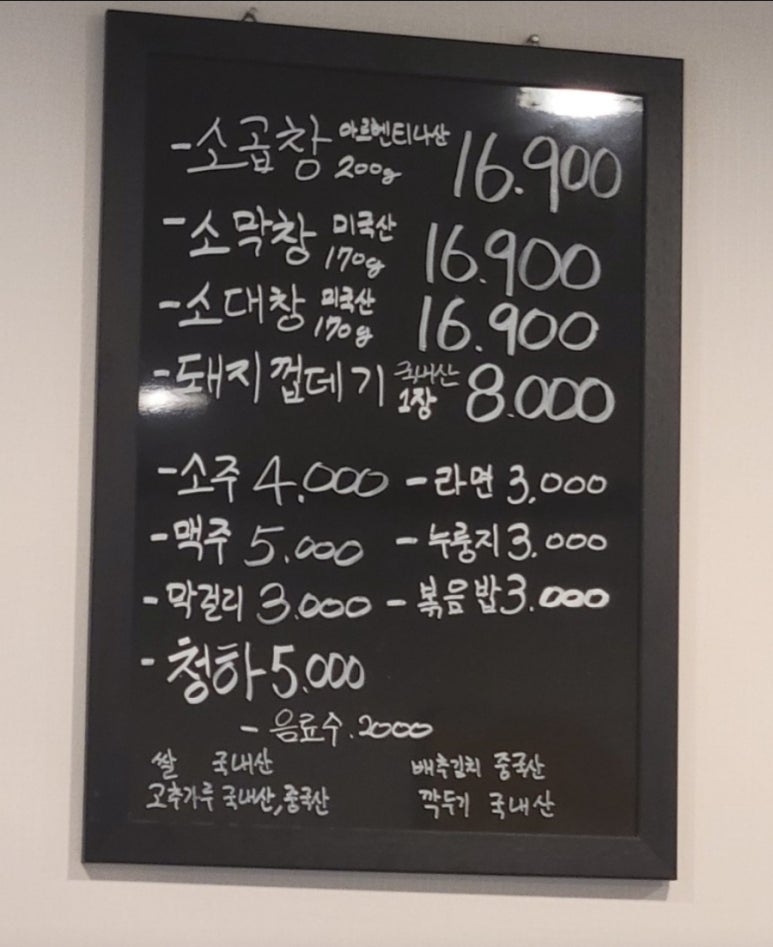 -소곱창 아르헨티나산 200g 16.900
-소막창 미국산 170g 16.900
-소대창 미국산 170g 16.900
-돼지껍데기 국내산 1장 8.000
-소주 4.000 -라면 3.000
-맥주 5.000 -누룽지 3.000
-막걸리 3.000 -볶음밥 3.000
-청하 5.000
-음료수.2000
쌀 국내산 배추김치 중국산
고추가루 국내산,중국산 깍두기 국내산